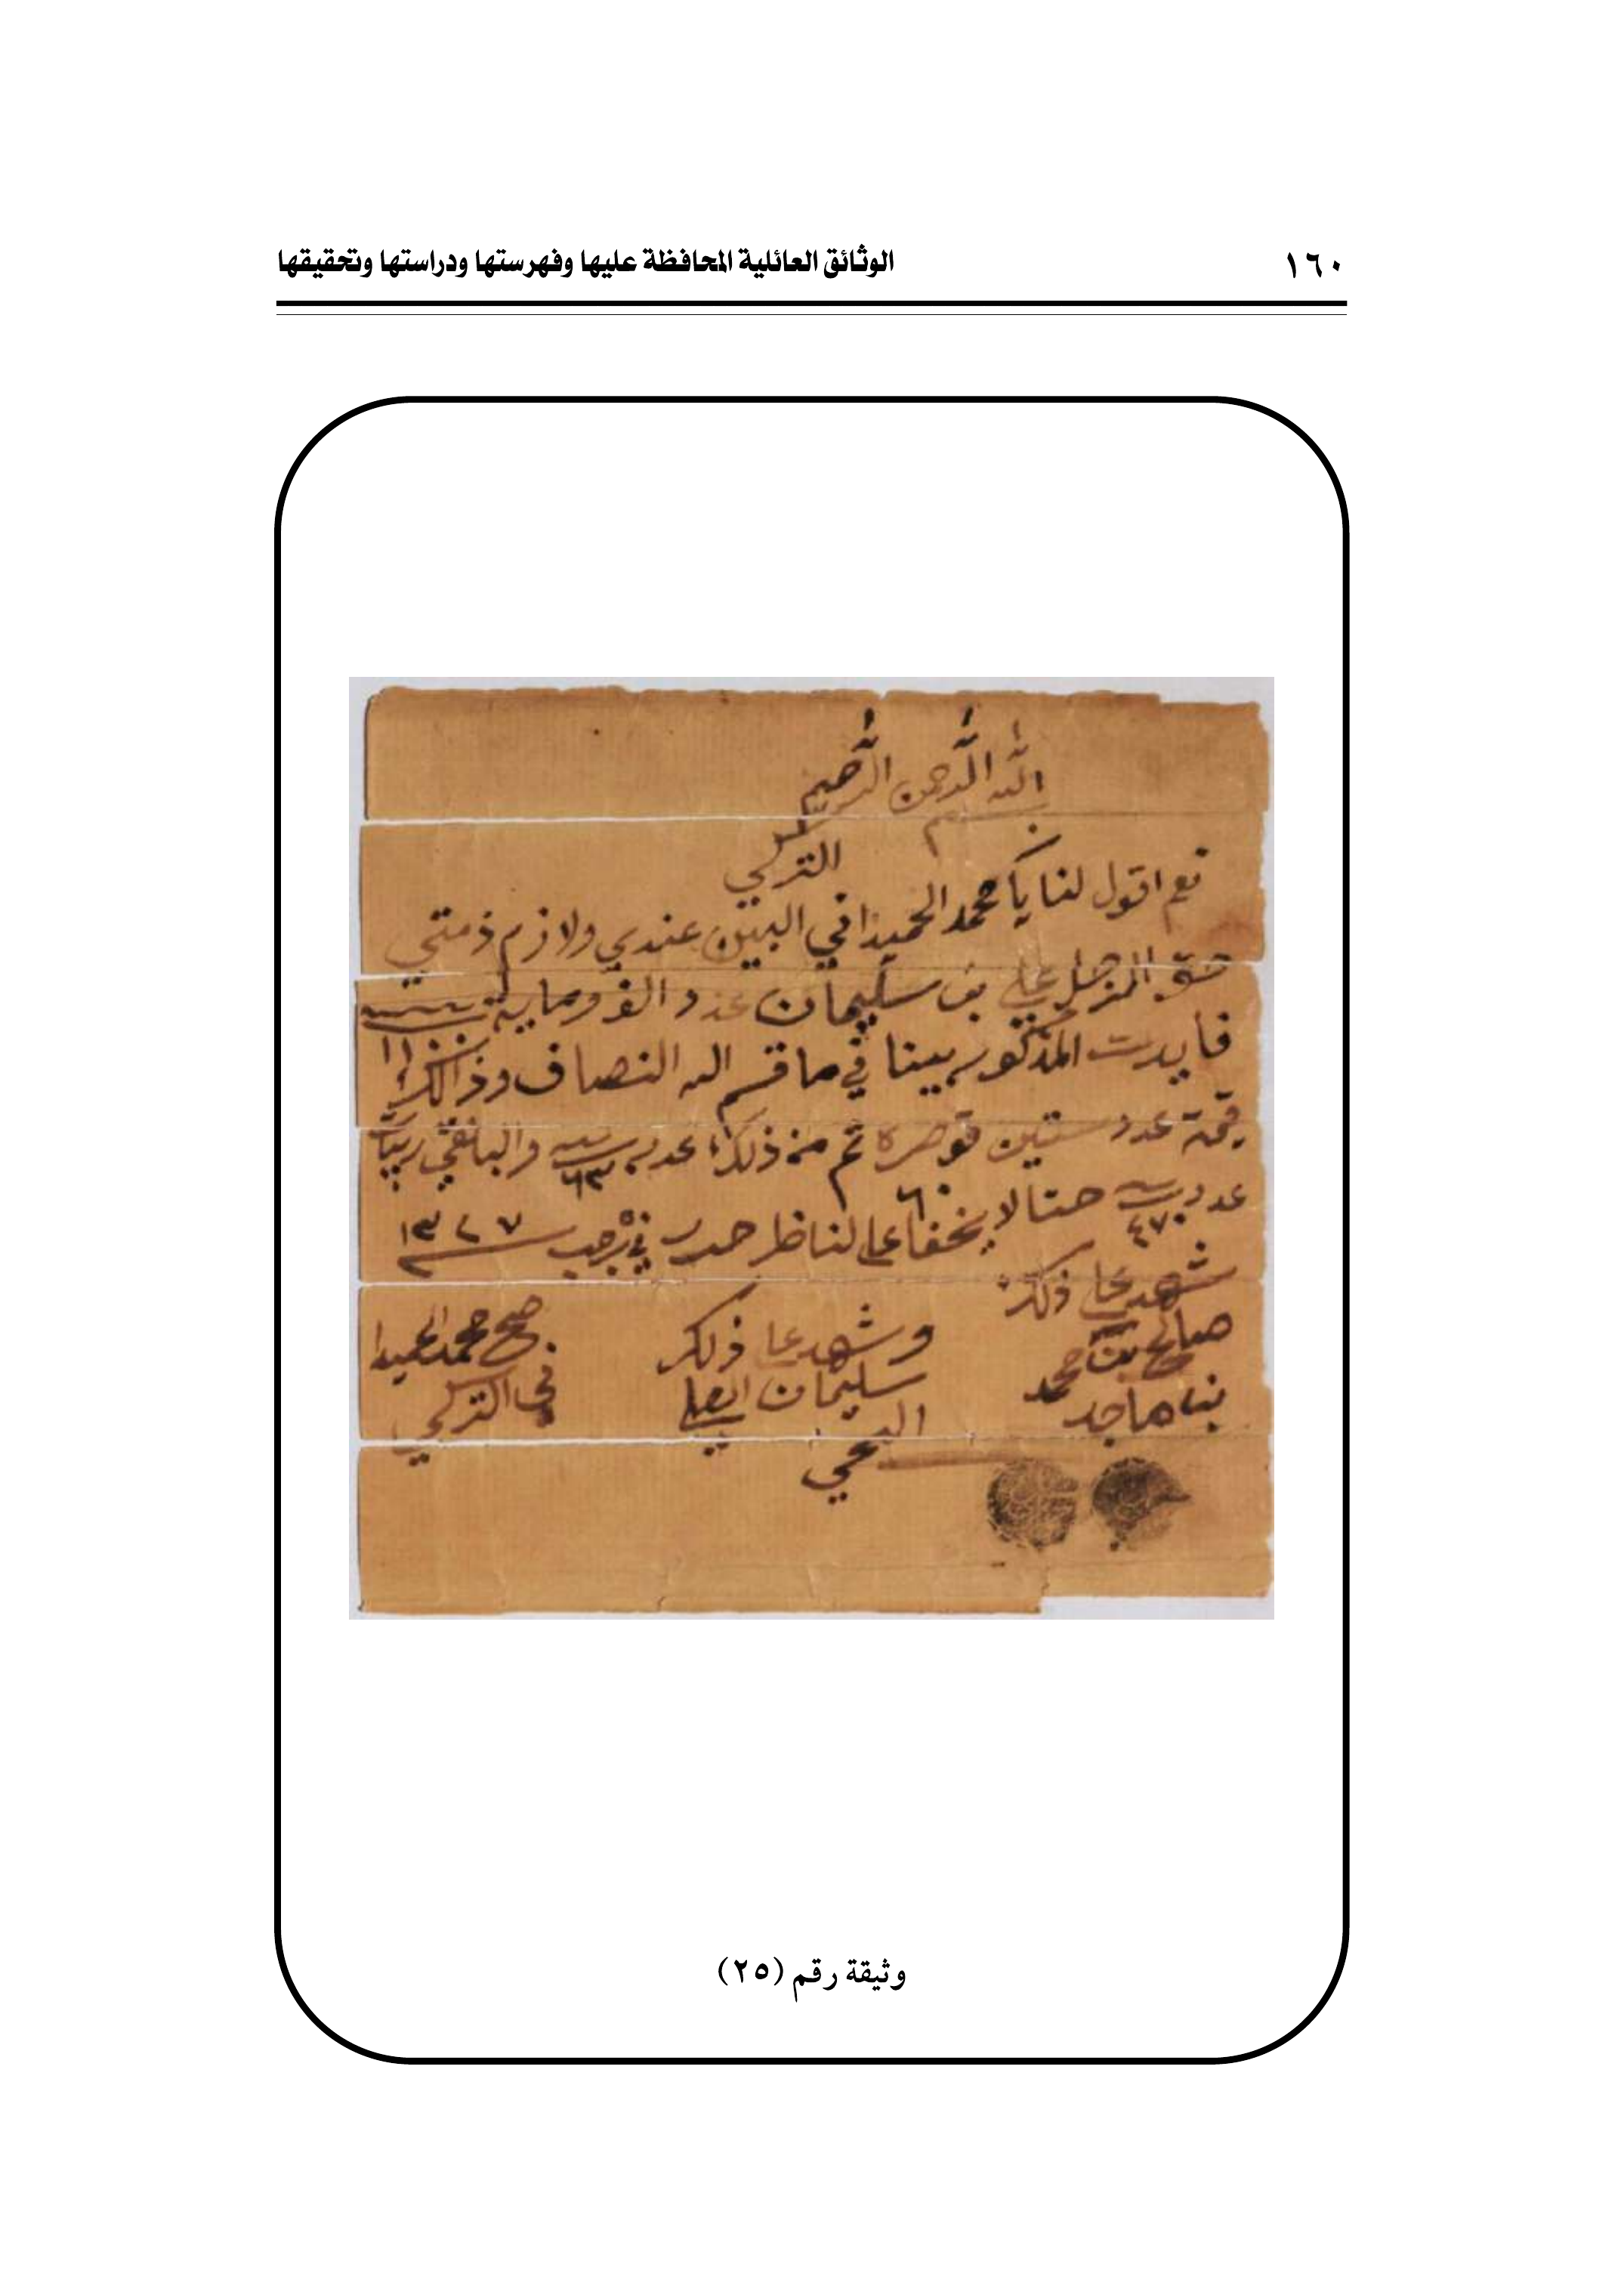 ١٦٠ الوثائق العائلية المحافظة عليها وفهرستها ودراستها وتحقيقها
بسم الله الرحمن الرحيم
التركي
نعم اقول لنا يا محمد الحميدا في البتين عندي ولازم ذمتي
حق المزهل علي بن سليمان عدد الف وماية
١١٠٠
فايدت المذكور بينا في ما قسم الله النصاف وذالك
قيمة عدد ستين قوصرة تم من ذلك عدد ٦٣٠ والباقي ريالات
٦٠
عدد ٤٧٠ حتا لا يخفا علي لناظر حرر في رجب ١٣٢٧
شهد علي ذلك
صالح بن محمد
بن ماجد
وشهد علي ذلك
سليمان العلي
صح محمد الحميدا
في التركي
وثيقة رقم (٢٥)